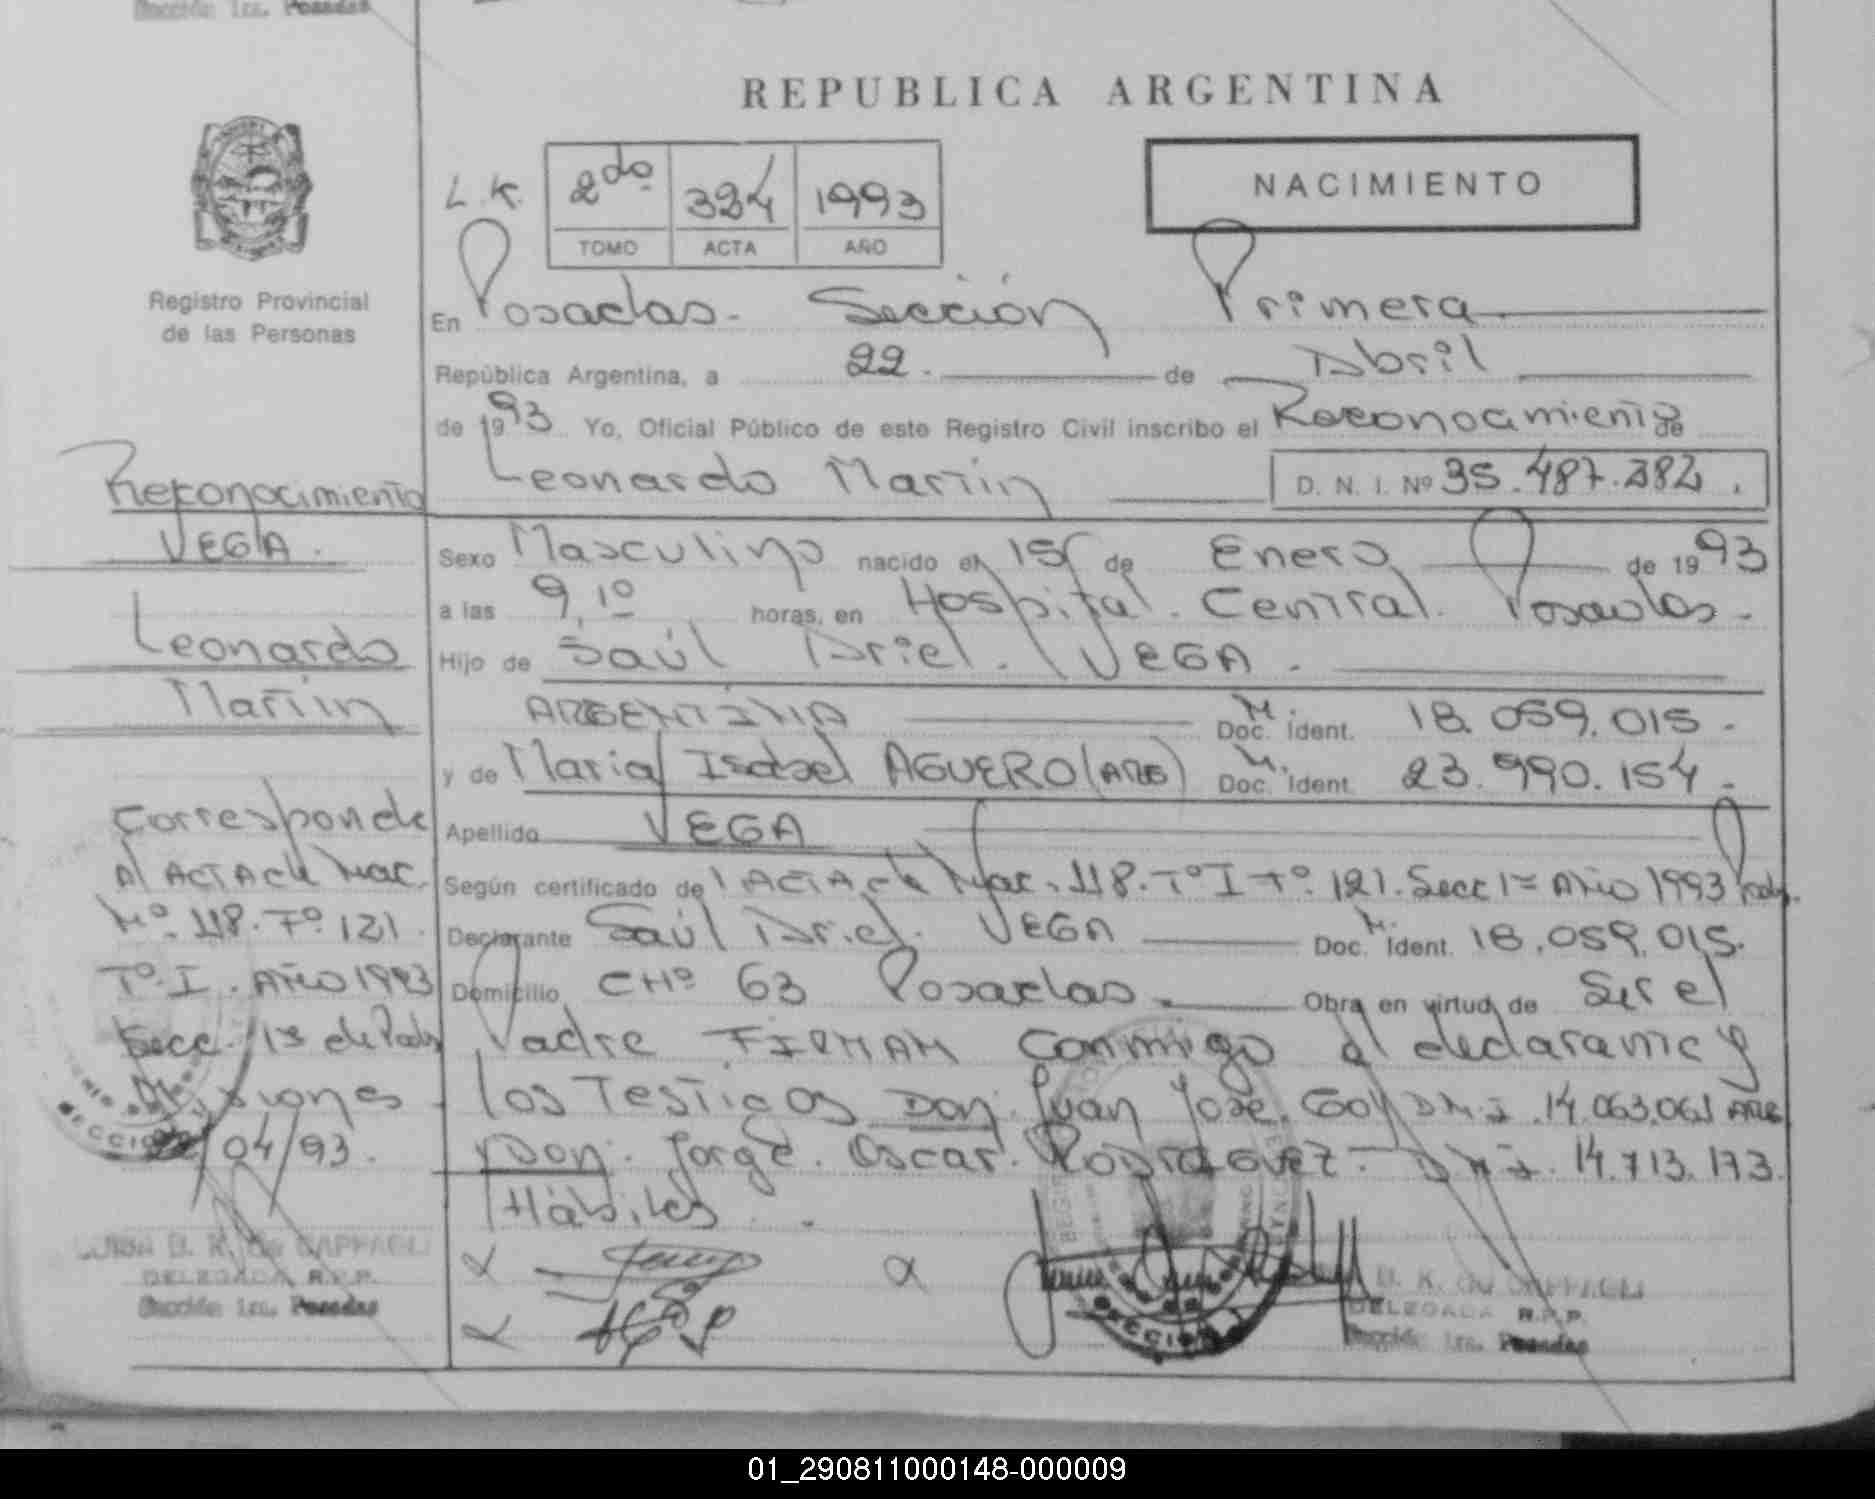 Sección 1ra. Posadas
REPUBLICA ARGENTINA
NACIMIENTO
L.K. 2do 324 1993
TOMO ACTA AÑO
Registro Provincial
de las Personas
En Posadas - Sección Primera
República Argentina, a 22 de Abril
de 1993 Yo, Oficial Público de este Registro Civil inscribo el Reconocimiento de
Leonardo Martín D. N. I. Nº 35.487.382.
Reconocimiento
VEGA.
Leonardo
Martín
Sexo Masculino nacido el 15 de Enero de 1993
a las 9,10 horas, en Hospital Central. Posadas.
Hijo de Saúl Ariel. VEGA.
ARGENTINA M. Doc. Ident. 18.059.015.
y de María Isabel AGUERO (ARG) M. Doc. Ident. 23.990.154.
Apellido VEGA
Según certificado del Acta de Nac. 118. Tº I Fº 121. Secc 1ª Año 1993 Pdas.
Declarante Saúl Ariel. VEGA M. Doc. Ident. 18.059.015.
Domicilio CHº 63 Posadas. Obra en virtud de Ser el
Padre FIRMAN conmigo el declarante y
los Testigos Don. Juan José. Goy D.N.I. 14.063.061 ARG
y Don. Jorge. Oscar. RODRIGUEZ. D.N.I. 14.713.173.
Hábiles.
Corresponde
Al Acta de Nac.
Nº 118. Fº 121.
Tº I. Año 1993
Secc. 1ª de Pdas
Misiones
22/04/93.
DELEGADA R.P.P.
Sección 1ra. Posadas
B. K. de CAPPAGLI
DELEGADA R.P.P.
Sección 1ra. Posadas
01_290811000148-000009